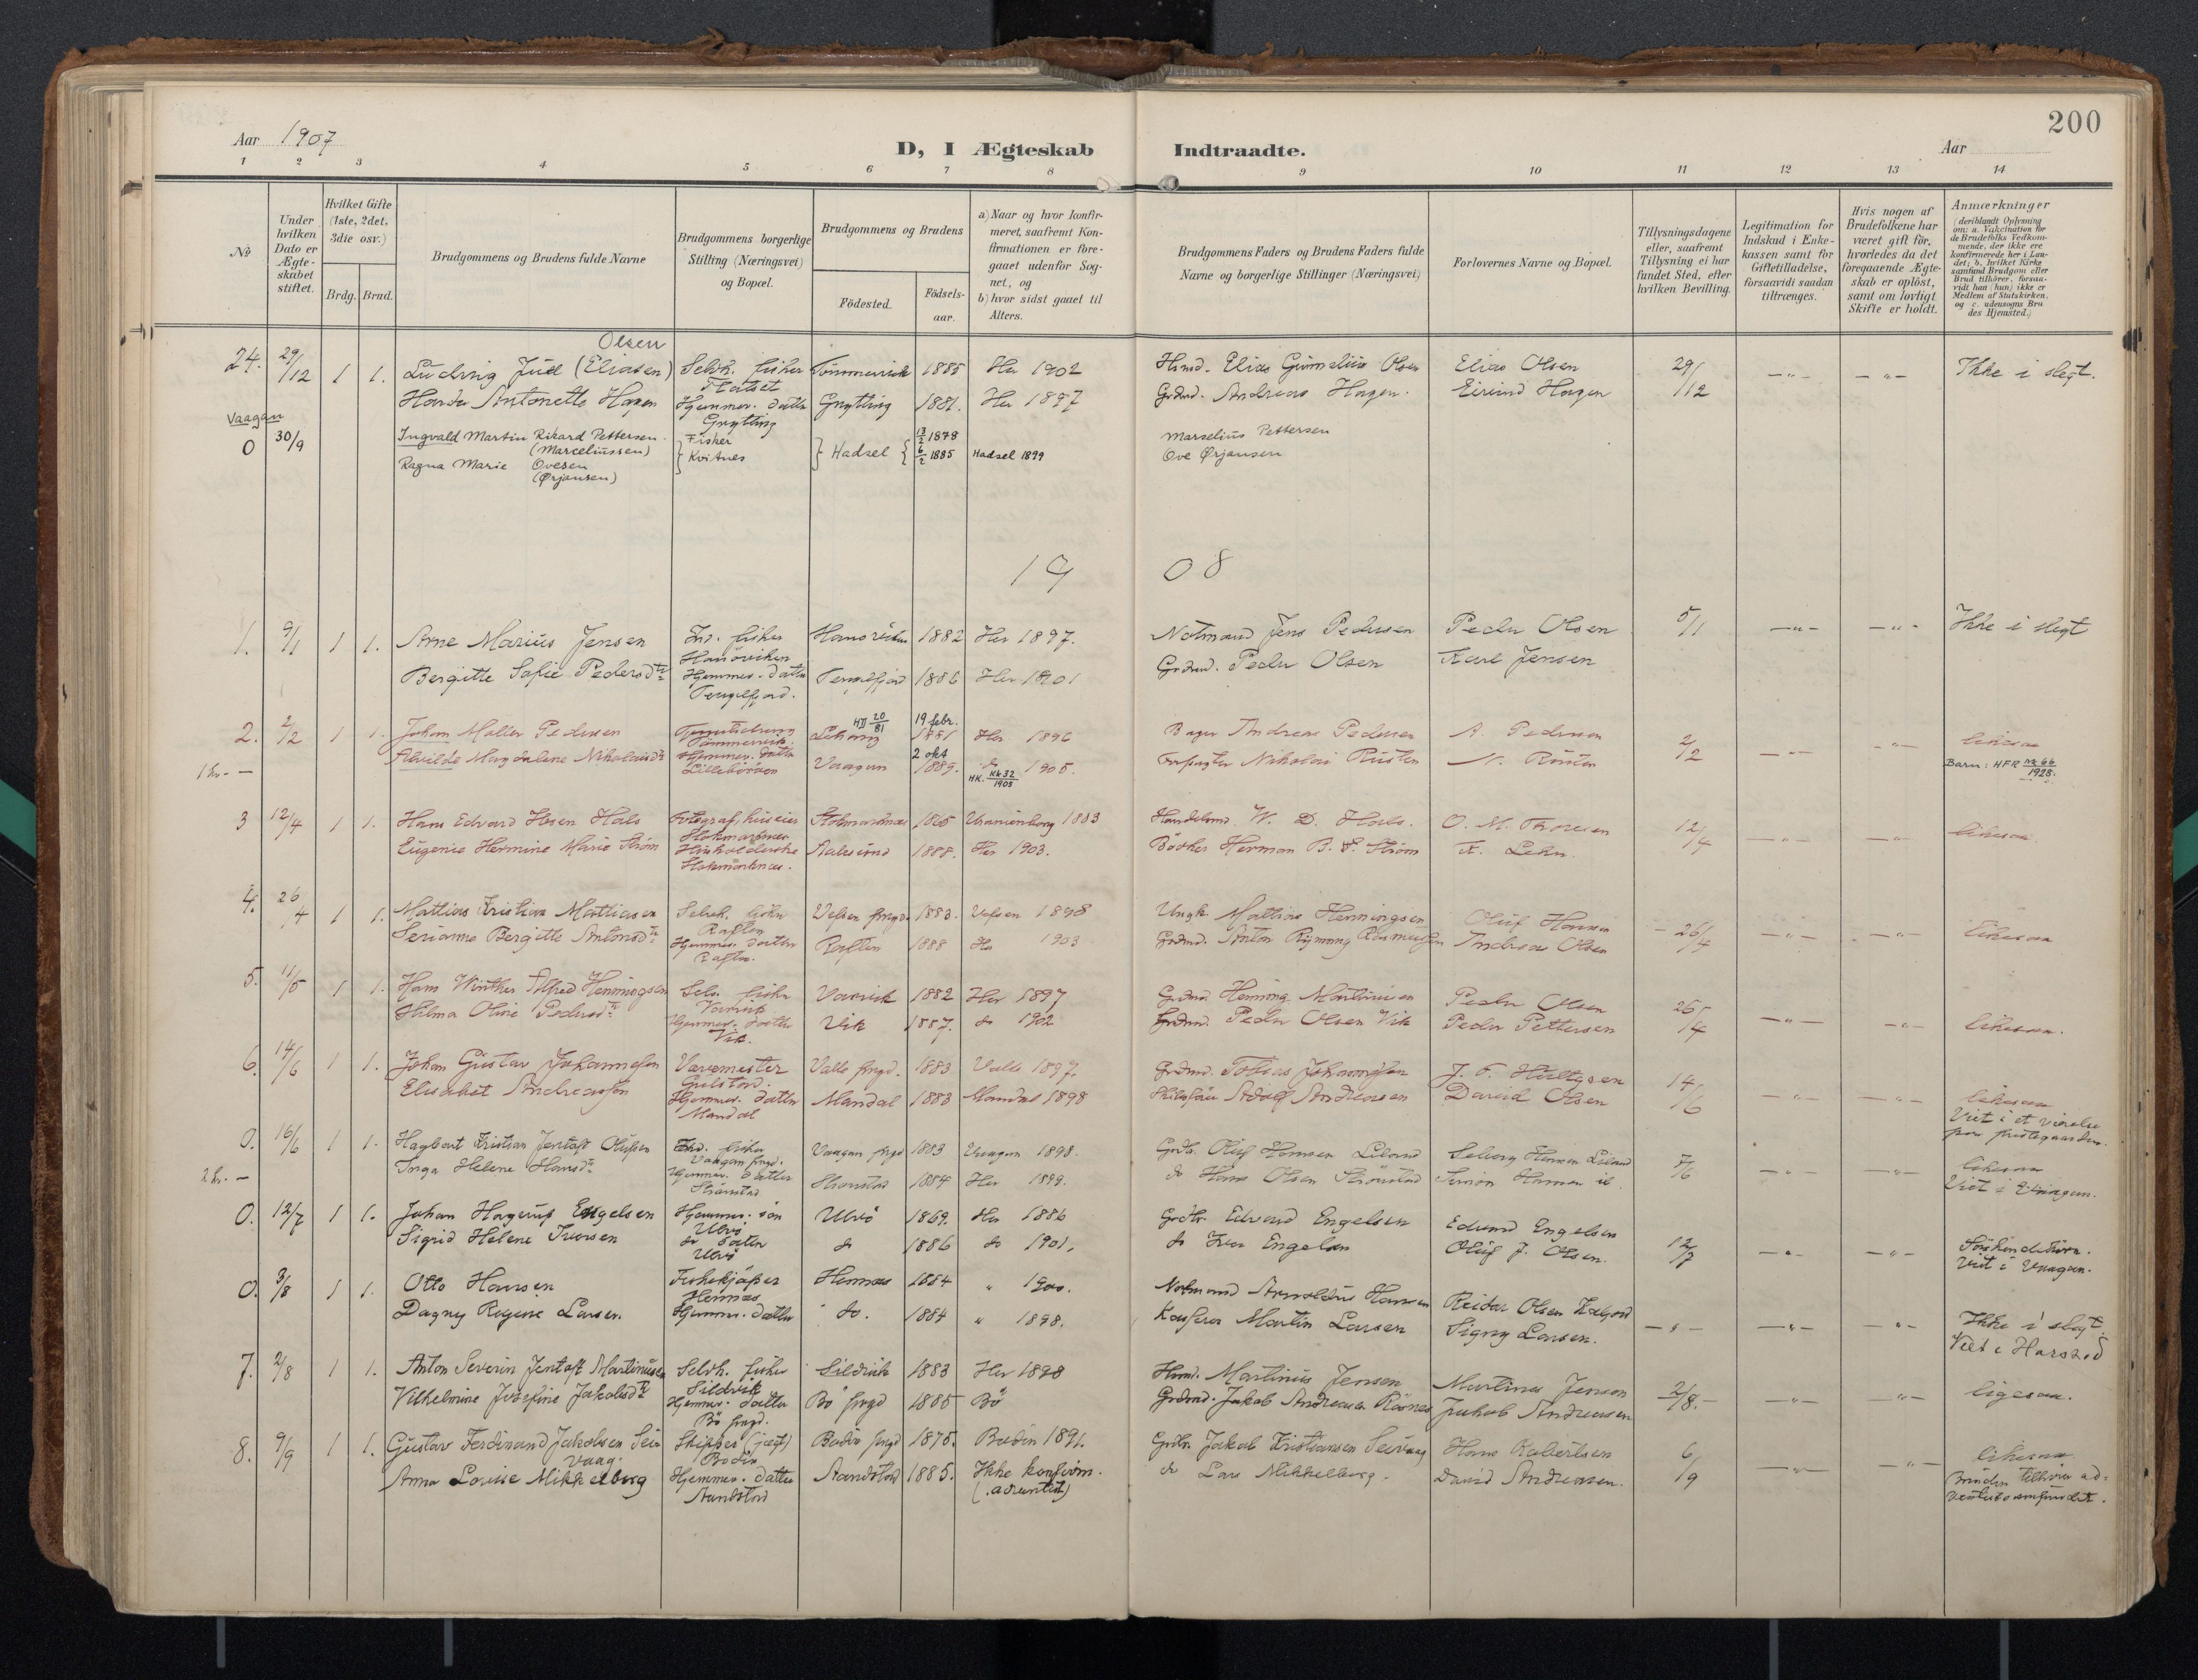 200
Aar 1907
D, I Ægteskab Indtraadte.
Aar
1 2 3 4 5 6 7 8 9 10 11 12 13 14
№
Under hvilken Dato er Ægte-skabet stiftet.
Hvilket Gifte (1ste, 2det, 3die osv.)
Brdg. Brud.
Brudgommens og Brudens fulde Navne
Brudgommens borgerlige Stilling (Næringsvei) og Bopæl.
Brudgommens og Brudens
Födested.
Födsels-aar.
a) Naar og hvor konfir-meret, saafremt Kon-firmationen er fore-gaaet udenför Sog-net, og
b) hvor sidst gaaet til Alters.
Brudgommens Faders og Brudens Faders fulde Navne og borgerlige Stillinger (Næringsvei)
Forlovernes Navne og Bopæl.
Tillysningsdagene eller, saafremt Tillysning ei har fundet Sted, efter hvilken Bevilling.
Legitimation for Indskud i Enke-kassen samt for Giftetilladelse, forsaavidi saadan tiltrænges.
Hvis nogen af Brudefolkene har været gift för, hvorledes da det foregaaende Ægte-skab er oplöst, samt om lovligt Skifte er holdt.
Anmærkninger
(deriblandt Oplysning om: a. Vakcination for de Brudefolks Vedkom-mende, der ikke ere konfirmerede her i Lan-det; b. hvilket Kirke samfund Brudgom eller Brud tilhörer, forsaa-vidt han (hun) ikke er Medlem af Statskirken, og c. udensogns Bru des Hjemsted.)
Olsen
24. 29/12 1 1. Ludvig Juel (Eliasen) Selvh. fisker 1885 Her 1902 Elias Olsen Elias Olsen 29/12 —"— —"— Ikke i slegt.
Antonette Hagen Hjemmev. datter Grytting 1881. Her 1897 Grdmd. Andreas Hagen. Eivind Hagen
Grytting
Vaagan
0 30/9 Ingvald Martin Rikard Pettersen. Fisker Hadsel 13/2 1878 Marselius Pettersen
(Marceliussen) Kvitnes
Ragna Marie Ovesen 6/2 1885 Hadsel 1899 Ove Ørjansen
(Ørjansen)
1908
1. 9/1 1 1. Arne Marius Jensen Ind. fisker 1882 Her 1897. Notmand Jens Pedersen Peder Olsen 5/1 —"— —"— Ikke i slegt
Bergitte Sofie Pedersdtr Hjemmev. datter Tengelfjord 1886 Her 1901 Grdmd. Peder Olsen Karl Jensen
Tengelfjord.
2. 2/2 1 1. Johan Møller Pedersen HD 20/81 19 febr. Her 1896 Andreas Pedersen A. Pedersen 2/2 —"— —"— likesaa
1 kr. — Alvilde Magdalene Nikolaisdtr Hjemmev. datter Vaagan 2 okt 1885. do 1905. Nikolai Rusten N. Rusten
HK. Kk 32/1903 Barn: HFR Nr 66/1928.
3 12/4 1 1. Hans Edvard Ibsen Hals Fotograf, huseier Stokmarknes 1865 Uranienborg 1883 W. D. Hals. O. M. Thoresen 12/4 —"— —"— likesaa.
Stokmarknes
Eugenie Hermine Marie Strøm Husholderske Aalesund 1888. Her 1903. Bödker Herman B. S. Strøm
Stokmarknes.
4. 26/4 1 1. Mathias Kristian Mathiasen Selvh. fisker Vefsen prgd. 1883. Vefsen 1898 Ungk. Mathias Henningsen Oluf Hansen 26/4 —"— —"— likesaa
Raften
Serianne Bergitte Antonsdtr Hjemmev. datter Raften 1888 Her 1903 Grdmd. Anton Rasmussen Andreas Olsen
Raften.
5. 11/5 1 1. Hans Winther Alfred Henningsen Selv. fisker 1882 Her 1897 Grdmd. Henning Martinisen Peder Olsen 26/4 —"— —"— likesaa.
Hilma Oline Pedersdtr Hjemmev. datter Vik 1887. do 1902 Grdmd. Peder Olsen Vik Peder Pettersen
Vik.
6. 14/6 1 1. Johan Gustav Johannesen Varemester Valle prgd. 1883 Valle 1897. Grdmd. Tobias Johannesen 14/6 —"— —"— likesaa
Gulstad.
Elisabet Andreassen Hjemmev. datter Mandal 1883 Mandal 1898 Adolf Andreasen David Olsen Viet i et værelse
Mandal paa prestegaarden.
0. 16/6 1 1. Hagbart Kristian Jentoft Olufsen fisker Vaagan prgd 1883 Vaagan 1898. Oluf Hansen 7/6 —"— —"— likesaa
Vaagan prgd.
2 kr. — Inga Helene Hansdtr Hjemmev. datter Strønstad 1884 Her 1899. do Hans Olsen Strønstad Simon Hansen Viet i Vaagan.
Strønstad
0. 12/7 1 1. Johan Hagerup Engelsen Hjemmev. søn Ulvö 1869. Her 1886 Edvard Engelsen Edvard Engelsen 12/7 —"— —"— Söskendebørn.
Ulvö
Sigrid Helene Iversen do datter do 1886 do 1901. do Iver Engelsen Oluf J. Olsen. Viet i Vaagan.
Ulvö
0. 3/8 1 1. Otto Hansen Fiskekjøper Hennes 1884 " 1900. Notmand Arnoldus Hansen Reidar Olsen —"— —"— —"— Ikke i slegt
Hennes
Dagny Regine Larsen. Hjemmev. datter do. 1884 " 1898. Martin Larsen Signy Larsen. Viet i Harstad
7. 2/8 1 1. Anton Severin Jentoft Martinusen Selvh. fisker Sildvik 1883 Her 1898 Martinus Jensen Martinus Jensen 2/8. — —"— —"— ligesaa.
Sildvik
Vilhelmine Josefine Jakobsdtr Hjemmev. datter Bö prgd 1885 Bö Grdmd. Jakob Andreasen Jakob Andreasen
Bö prgd.
8. 9/9 1 1. Gustav Ferdinand Jakobsen Sei Skipper (jægt) Bodin prgd 1875. Bodin 1891. Jakob Kristiansen Seivaag Hans Robertsen 6/9 —"— —"— likesaa
vaag. Bodin
Anna Louise Mikkelborg Hjemmev. datter Sandstad 1885. Ikke konfirm. do Lars Mikkelborg. David Andreasen. Bruden tilhörer ad-
Sandstad (adventist) ventistsamfundet.